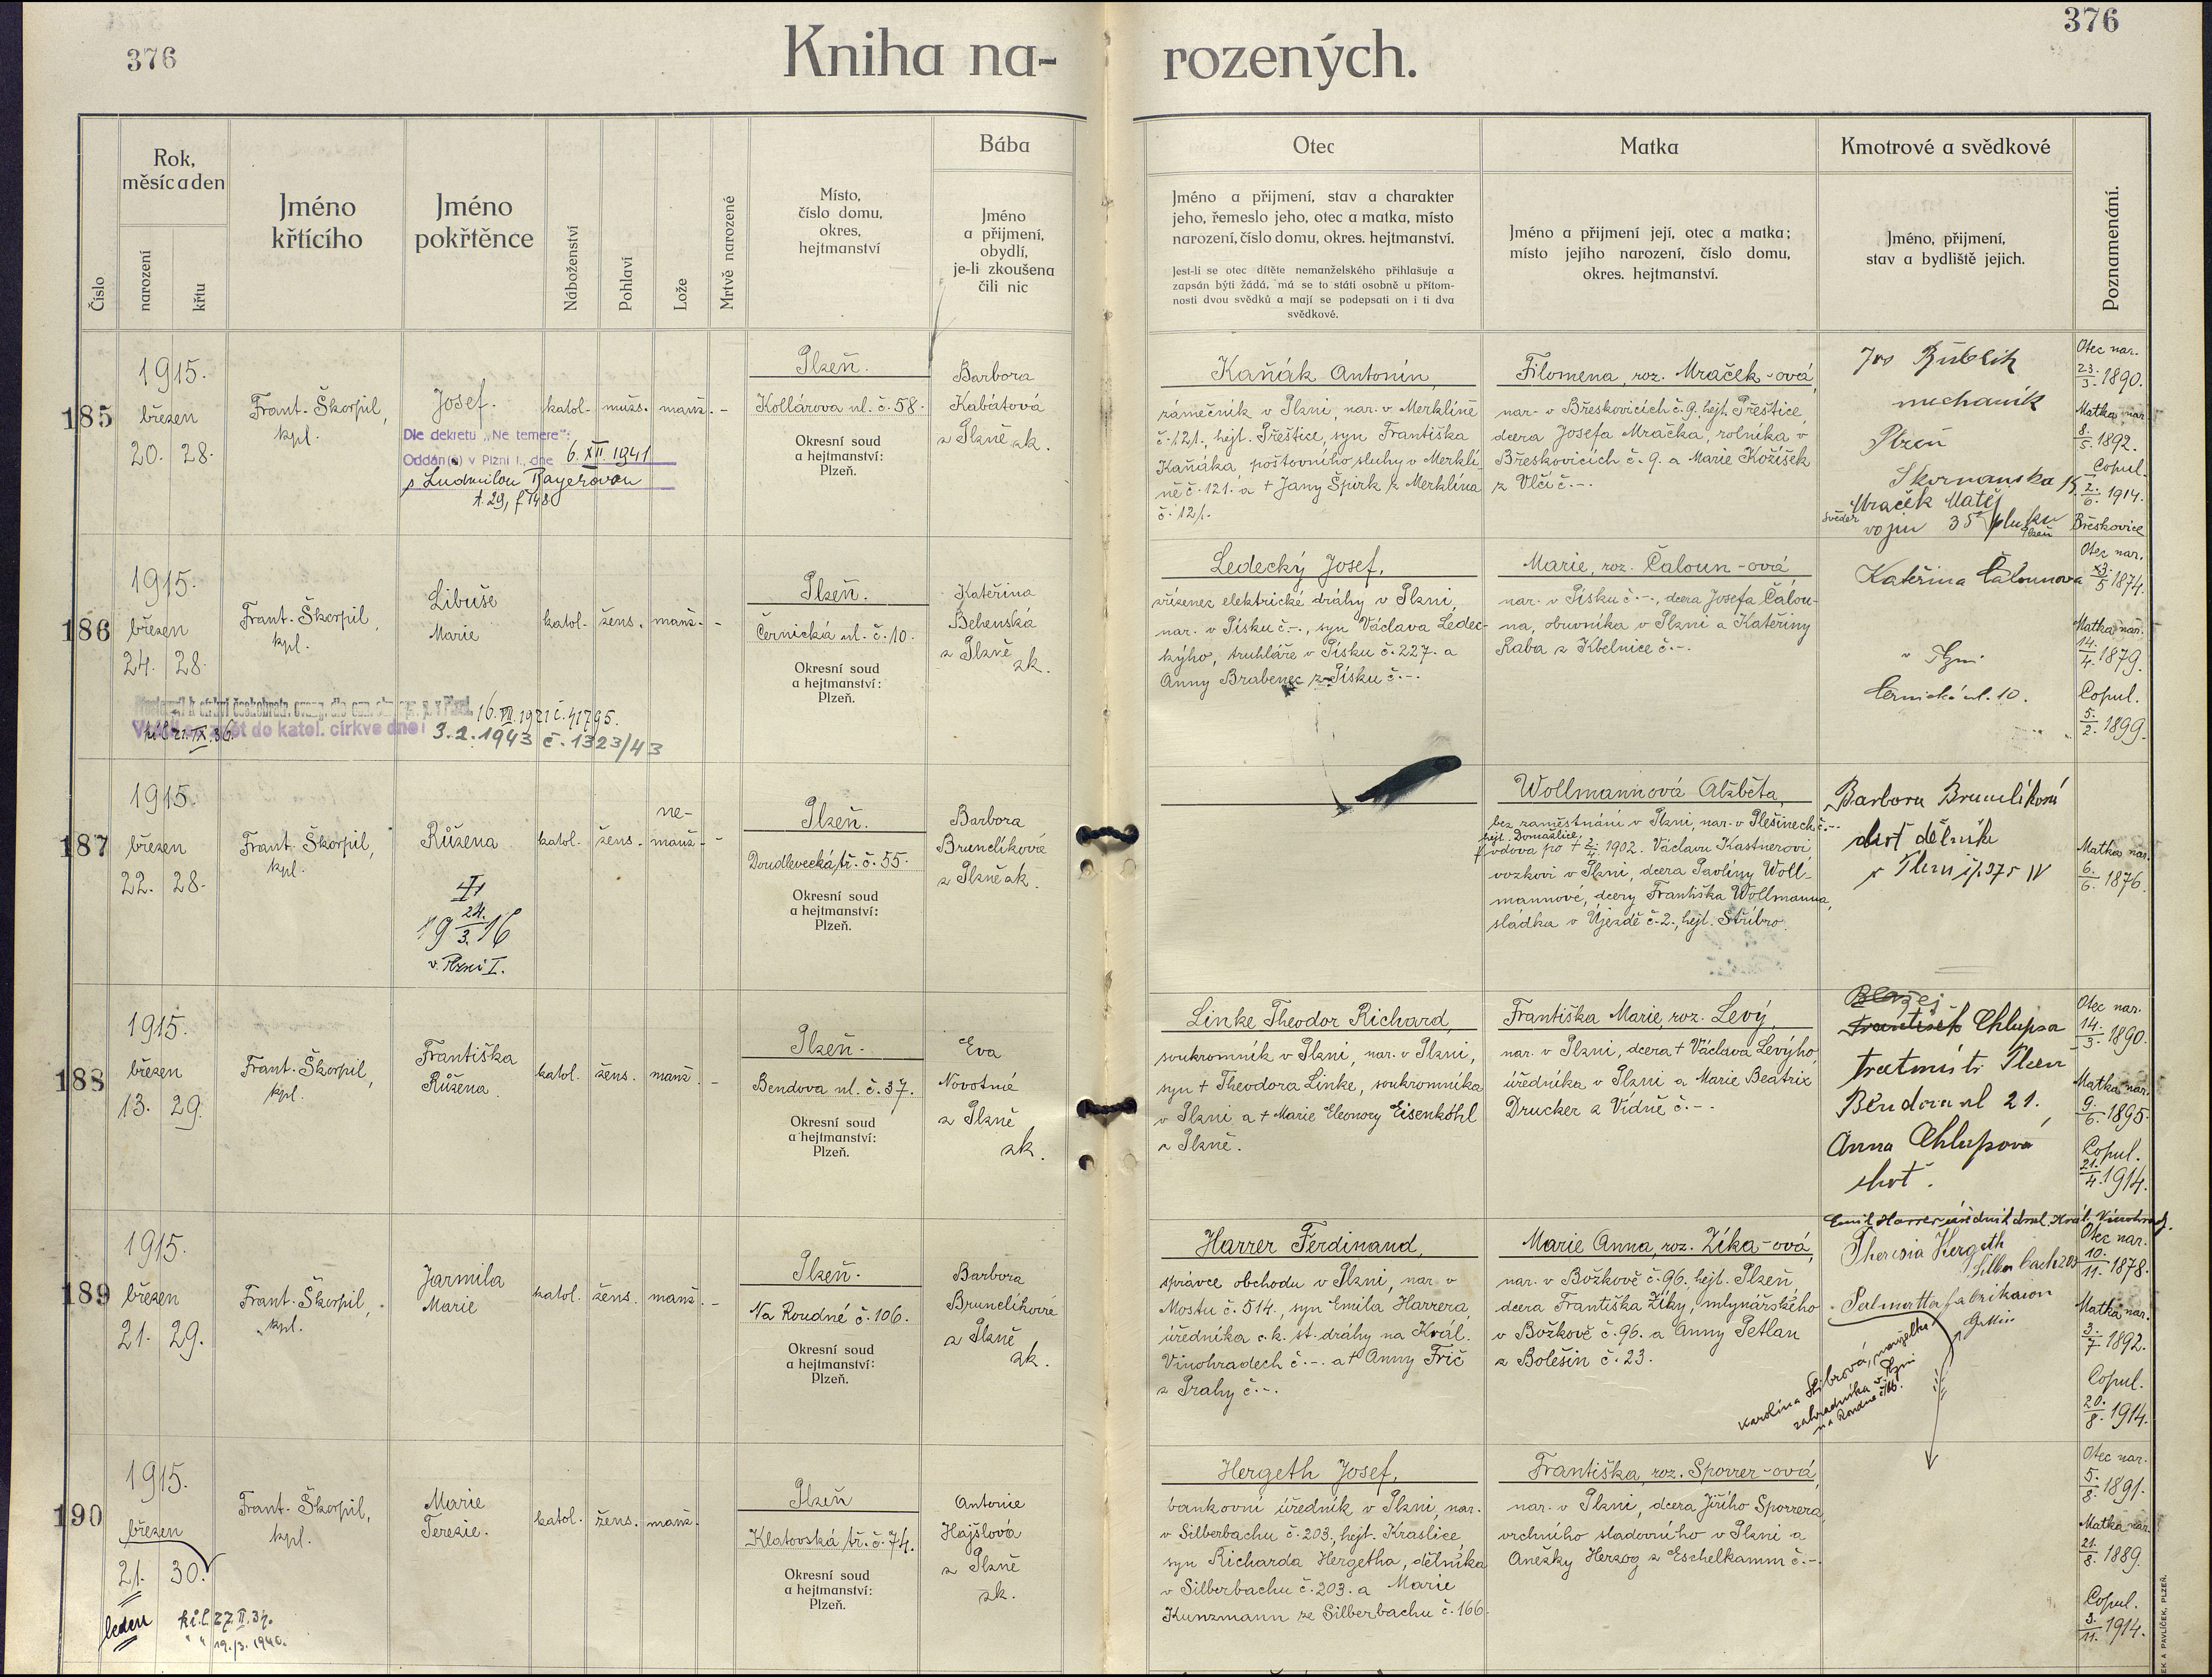 376
376
Kniha na-
rozených.
Číslo
Rok,
měsíc a den
narození
křtu
Jméno
křtícího
Jméno
pokřtěnce
Náboženství
Pohlaví
Lože
Mrtvě narozené
Místo,
číslo domu,
okres,
hejtmanství
Bába
Jméno
a příjmení,
obydlí,
je-li zkoušena
čili nic
Otec
Jméno a přijmení, stav a charakter
jeho, řemeslo jeho, otec a matka, místo
narození, číslo domu, okres. hejtmanství.
Jest-li se otec dítěte nemanželského přihlašuje a
zapsán býti žádá, má se to státi osobně u přítom-
nosti dvou svědků a mají se podepsati on i ti dva
svědkové.
Matka
Jméno a příjmení její, otec a matka;
místo jejího narození, číslo domu,
okres. hejtmanství.
Kmotrové a svědkové
Jméno, přijmení,
stav a bydliště jejich.
Poznamenání.
185
1915.
březen
20. 28.
Frant. Škorpil,
kpl.
Josef.
Dle dekretu „Ne temere":
Oddán(a) v Plzni I., dne 6. XII. 1941
s Ludmilou Bayerovou
t. 29, f 148
katol.
mužs.
manž.
-
Plzeň.
Kollárova ul. č. 58.
Okresní soud
a hejtmanství:
Plzeň.
Barbora
Kabátová
z Plzně zk.
Kaňák Antonín,
zámečník v Plzni, nar. v Merklíně
č. 121., hejt. Přeštice, syn Františka
Kaňáka, poštovního sluhy v Merklí-
ně č. 121. a + Jany Špirk z Merklína
č. 121.
Filomena, roz. Mraček-ová,
nar. v Břeskovicích č. 9. hejt. Přeštice,
dcera Josefa Mračka, rolníka v
Břeskovicích č. 9. a Marie Kožíšek
z Vlčí č. -.
mechanik
Plzeň
Mraček Matěj
svědek
vojín 35 pluku
Plzeň
Otec nar.
23./3. 1890.
Matka nar.
8./5. 1892.
Copul.
2./6. 1914.
Břeskovice
186
1915.
březen
24. 28.
Frant. Škorpil,
kpl.
Libuše
Marie
katol.
žens.
manž.
-
Plzeň.
Černická ul. č. 10.
Okresní soud
a hejtmanství:
Plzeň.
Kateřina
Behenská
z Plzně
zk.
Ledecký Josef,
zřízenec elektrické dráhy v Plzni,
nar. v Písku č. -., syn Václava Ledec-
kýho, truhláře v Písku č. 227. a
Anny Brabenec z Písku č. -.
Marie, roz. Čaloun-ová
nar. v Písku č. -., dcera Josefa Čalou-
na, obuvníka v Plzni a Kateřiny
Raba z Kbelnice č. -.
Kateřina Čalounova
v Plzni
Černická ul. 10.
Otec nar.
5 1874.
Matka nar.
14./4. 1879.
Copul.
5./2. 1899.
16. VII. 1921 č. 41795.
zpět do katol. církve dne: 3. 2. 1943 č. 1323/43
187
1915.
březen
22. 28.
Frant. Škorpil,
kpl.
Růžena
†
24./3. 1916
v Plzni I.
katol.
žens.
ne-
manž.
-
Plzeň.
Doudlevecká tř. č. 55.
Okresní soud
a hejtmanství:
Plzeň.
Barbora
Brunclíková
z Plzně zk.
Wollmannová Alžběta,
bez zaměstnání v Plzni, nar. v Plešinech č. -.
hejt. Domažlice,
vdova po + 2./4. 1902. Václavu Kastnerovi,
vozkovi v Plzni, dcera Pavlíny Woll-
mannové, dcery Františka Wollmanna,
sládka v Újezdě č. 2., hejt. Stříbro.
Barbora Brunclíková
choť dělníka
Matka nar.
6./6. 1876.
188
1915.
březen
13. 29.
Frant. Škorpil,
kpl.
Františka
Růžena.
katol.
žens.
manž.
-
Plzeň.
Bendova ul. č. 37.
Okresní soud
a hejtmanství:
Plzeň.
Eva
Novotná
z Plzně
zk.
Linke Theodor Richard,
soukromník v Plzni, nar. v Plzni,
syn + Theodora Linke, soukromníka
v Plzni a + Marie Eleonory Eisenköhl
z Plzně.
Františka Marie, roz. Levý,
nar. v Plzni, dcera + Václava Levýho,
úředníka v Plzni a Marie Beatrix
Drucker z Vídně č. -.
Blažej
František Chlupsa
tratmistr Plzeň
Bendova ul 21.
Anna Chlupsová
choť.
Otec nar.
14./3. 1890.
Matka nar.
9./6. 1895.
Copul.
21./4. 1914.
189
1915.
březen
21. 29.
Frant. Škorpil,
kpl.
Jarmila
Marie
katol.
žens.
manž.
-
Plzeň.
Na Roudné č. 106.
Okresní soud
a hejtmanství:
Plzeň.
Barbora
Brunclíková
z Plzně
zk.
Harrer Ferdinand,
správce obchodu v Plzni, nar. v
Mostu č. 514., syn Emila Harrera,
úředníka c. k. st. dráhy na Král.
Vinohradech č. -. a + Anny Frič
z Prahy č. -.
Marie Anna, roz. Zíka-ová,
nar. v Božkově č. 96. hejt. Plzeň,
dcera Františka Zíky, mlynářského
v Božkově č. 96. a Anny Petlan
z Bolešin č. 23.
Emil Harrer úředník drah. Král. Vinohrady.
Theresia Hergeth
Silberbach 203
Karolína Stibrová, manželka
zahradníka v Plzni
na Roudné č. 106.
Otec nar.
10./11. 1878.
Matka nar.
3./7. 1892.
Copul.
20./8. 1914.
190
1915.
březen
21. 30.
leden
Frant. Škorpil,
kpl.
Marie
Terezie.
katol.
žens.
manž.
Plzeň
Klatovská tř. č. 74.
Okresní soud
a hejtmanství:
Plzeň.
Antonie
Hajšlová
z Plzně
zk.
Hergeth Josef,
bankovní úředník v Plzni, nar.
v Silberbachu č. 203., hejt. Kraslice,
syn Richarda Hergetha, dělníka
v Silberbachu č. 203. a Marie
Kunzmann ze Silberbachu č. 166.
Františka, roz. Sporrer-ová,
nar. v Plzni, dcera Jiřího Sporrera,
vrchního sladovního v Plzni a
Anežky Herzog z Eschelkamm č. -.
Otec nar.
5./8. 1891.
Matka nar.
21./8. 1889.
Copul.
3./11. 1914.
kř. l. 27. II. 37.
" " 19./3. 1940.
EK A PAVLÍČEK, PLZEŇ.